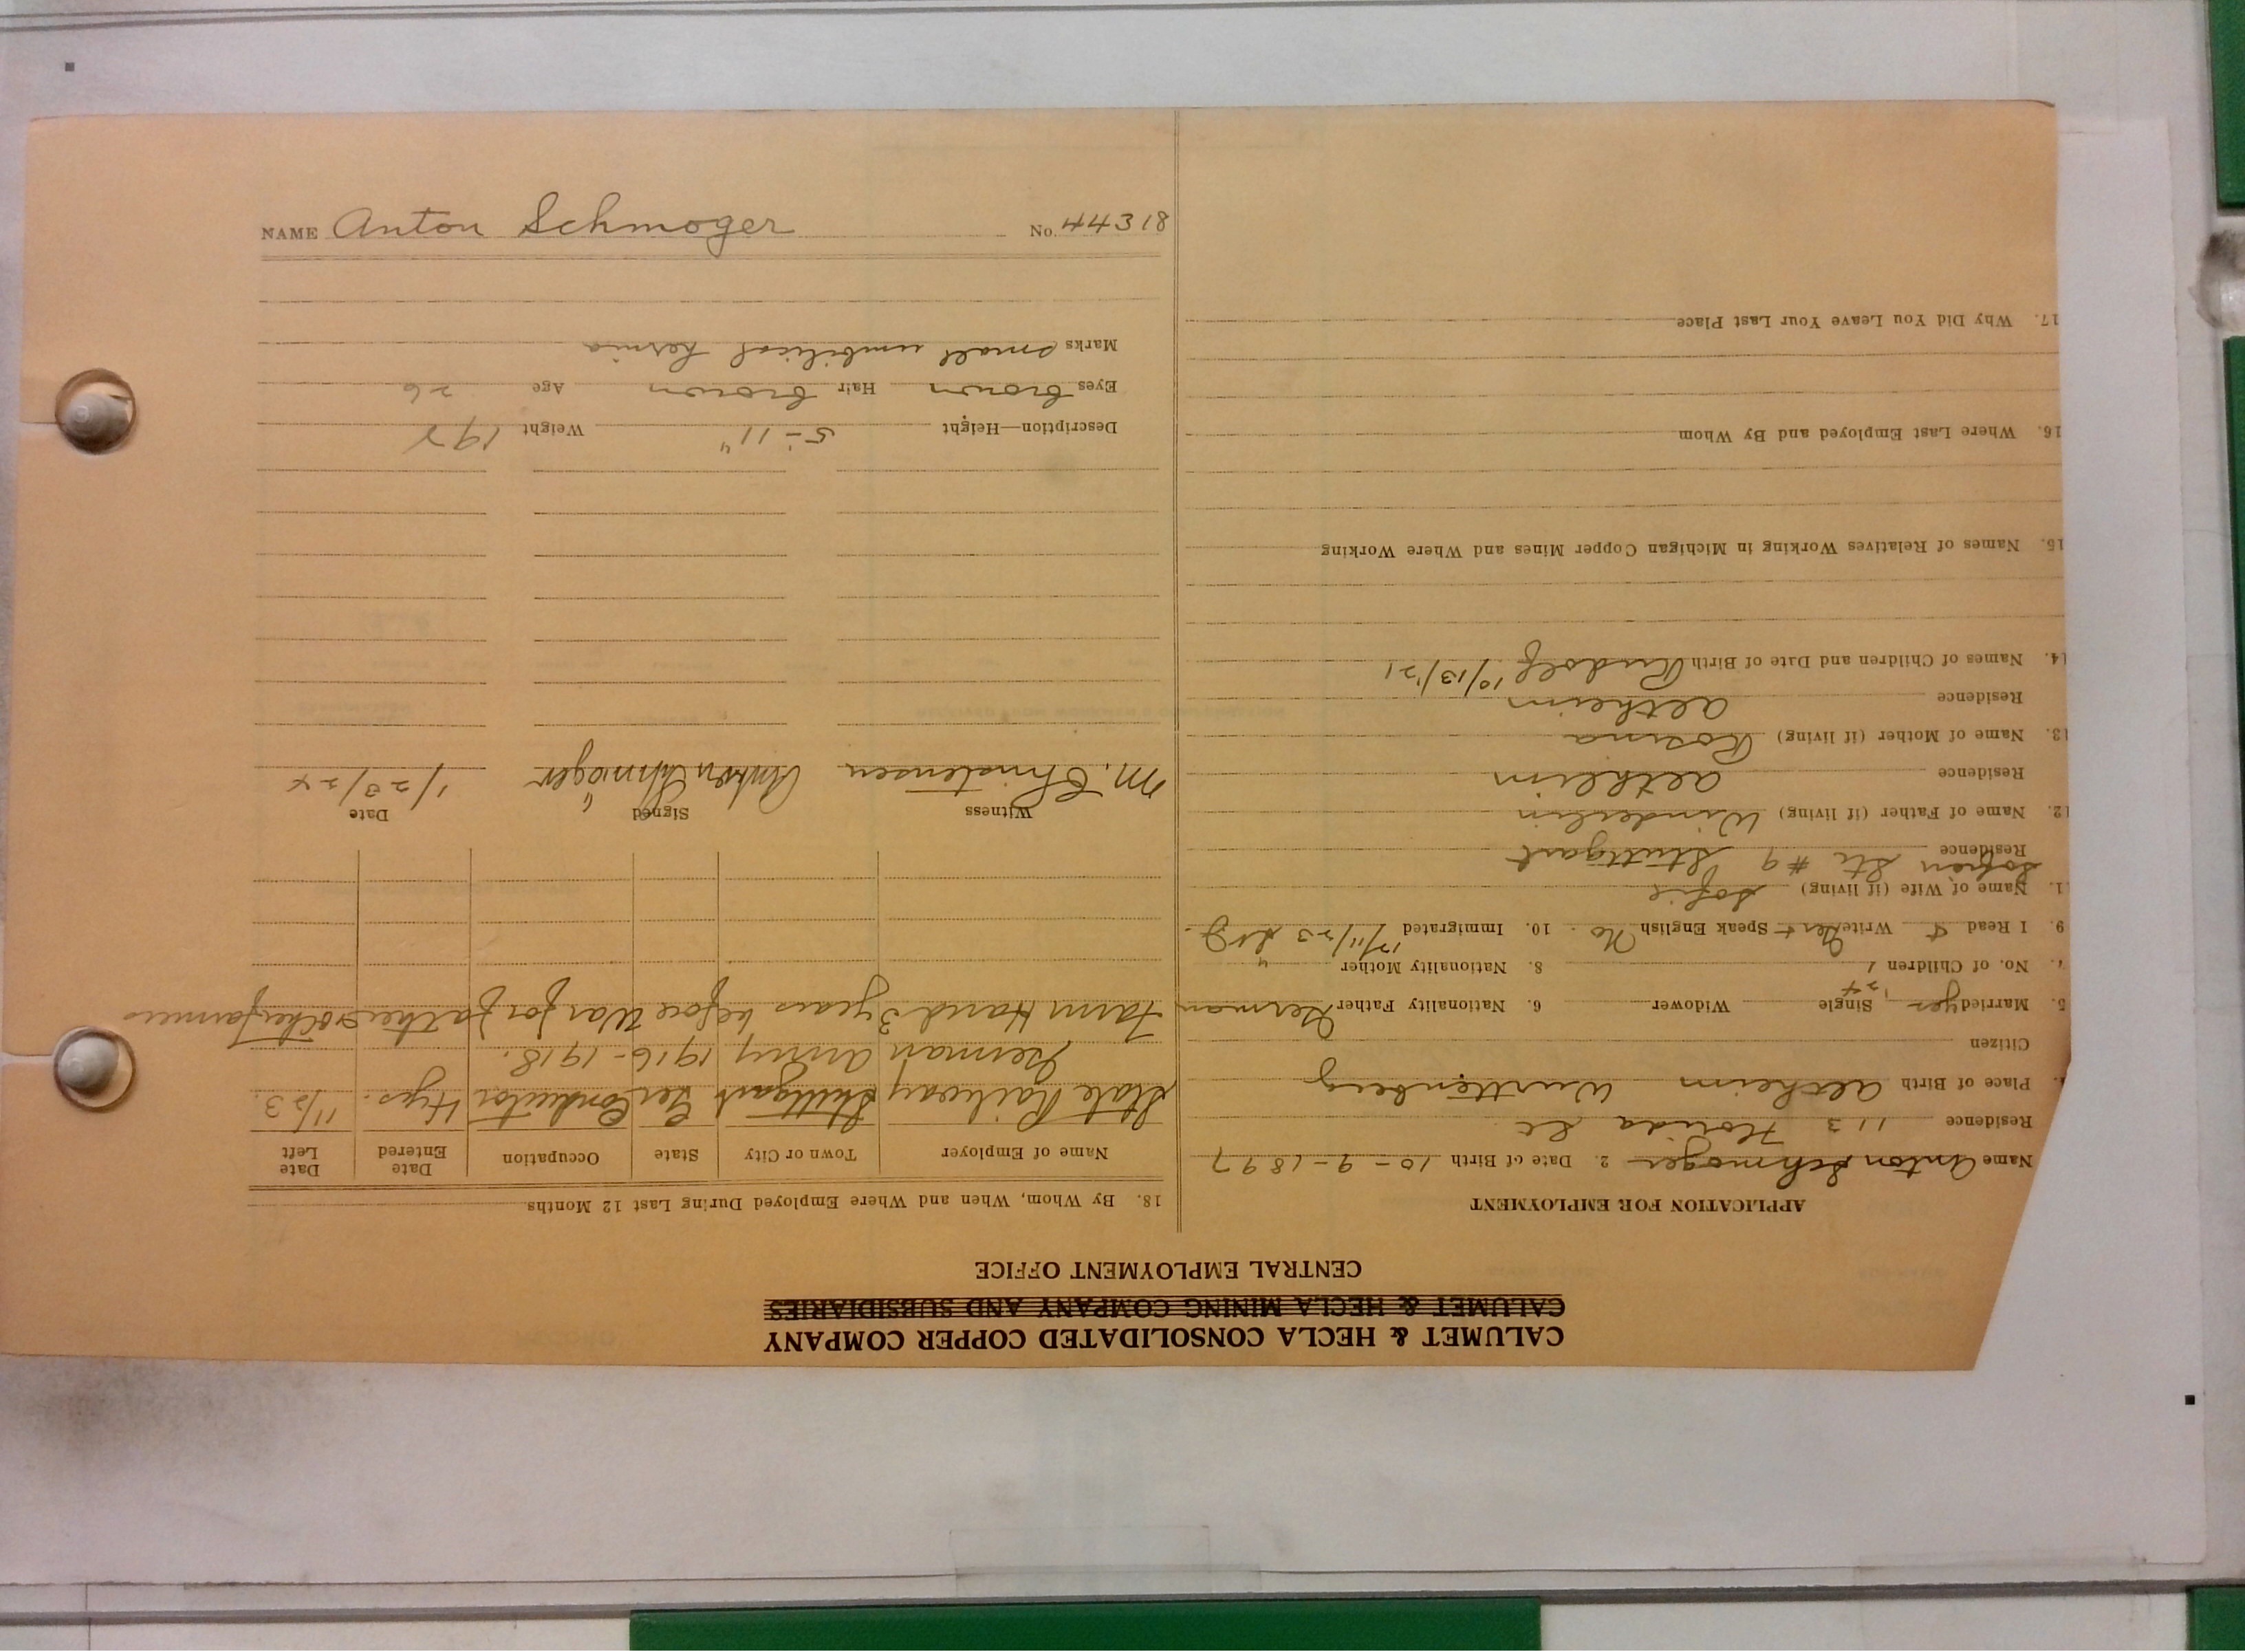 NAME Anton Schmoger No. 44318
CALUMET & HECLA CONSOLIDATED COPPER COMPANY
CALUMET & HECLA MINING COMPANY AND SUBSIDIARIES
CENTRAL EMPLOYMENT OFFICE
APPLICATION FOR EMPLOYMENT
Name Anton Schmoger 2. Date of Birth 10-9-1897
Residence 113 Florida
Place of Birth Altheim Wurttenberg
Citizen
5. Married yes Single Widower 6. Nationality Father German
7. No. of Children 1 8. Nationality Mother "
9. I Read + Write Ger + Speak English No. 10. Immigrated 12/11/23
11. Name of Wife (if living) Sofie
Residence Sofien Str #9 Stuttgart
12. Name of Father (if living) Winderlin
Residence Altheim
13. Name of Mother (if living) Rosina
Residence Altheim
14. Names of Children and Date of Birth Rudolf 10/13/'21
15. Names of Relatives Working in Michigan Copper Mines and Where Working
16. Where Last Employed and By Whom
17. Why Did You Leave Your Last Place
18. By Whom, When and Where Employed During Last 12 Months
Name of Employer Town or City State Occupation Date Entered Date Left
State Railway Stuttgart Ger Conductor 4 yrs. 11/23.
German Army 1916-1918.
Farm Hand 3 years before War for father & other farmers
Witness Signed Date
M. Christensen Anton Schmöger 1/23/24
Description—Height 5'-11" Weight 192
Eyes brown Hair brown Age 26
Marks small umbilical hernia